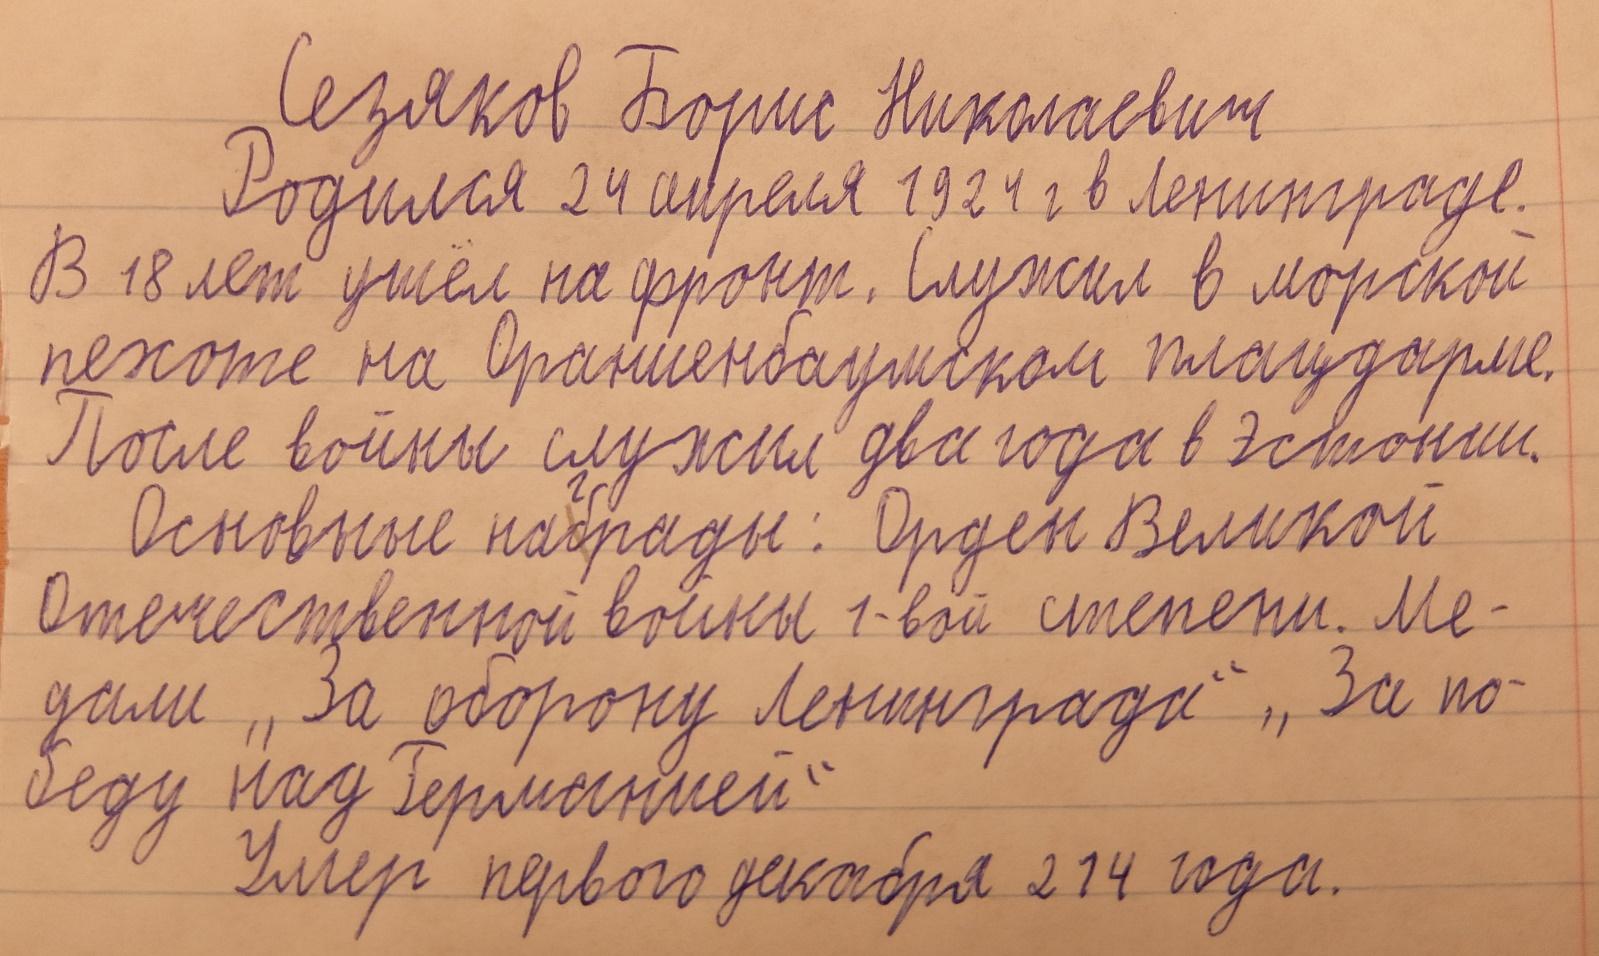 Сезяков Борис Николаевич
Родился 24 апреля 1924 г в Ленинграде.
В 18 лет ушёл на фронт. Служил в морской
пехоте на Ораниенбаумском плацдарме.
После войны служил два года в Эстонии.
Основные награды: Орден Великой
Отечественной войны 1-вой степени. Ме-
дали „За оборону Ленинграда“ „За по-
беду над Германией“
Умер первого декабря 214 года.